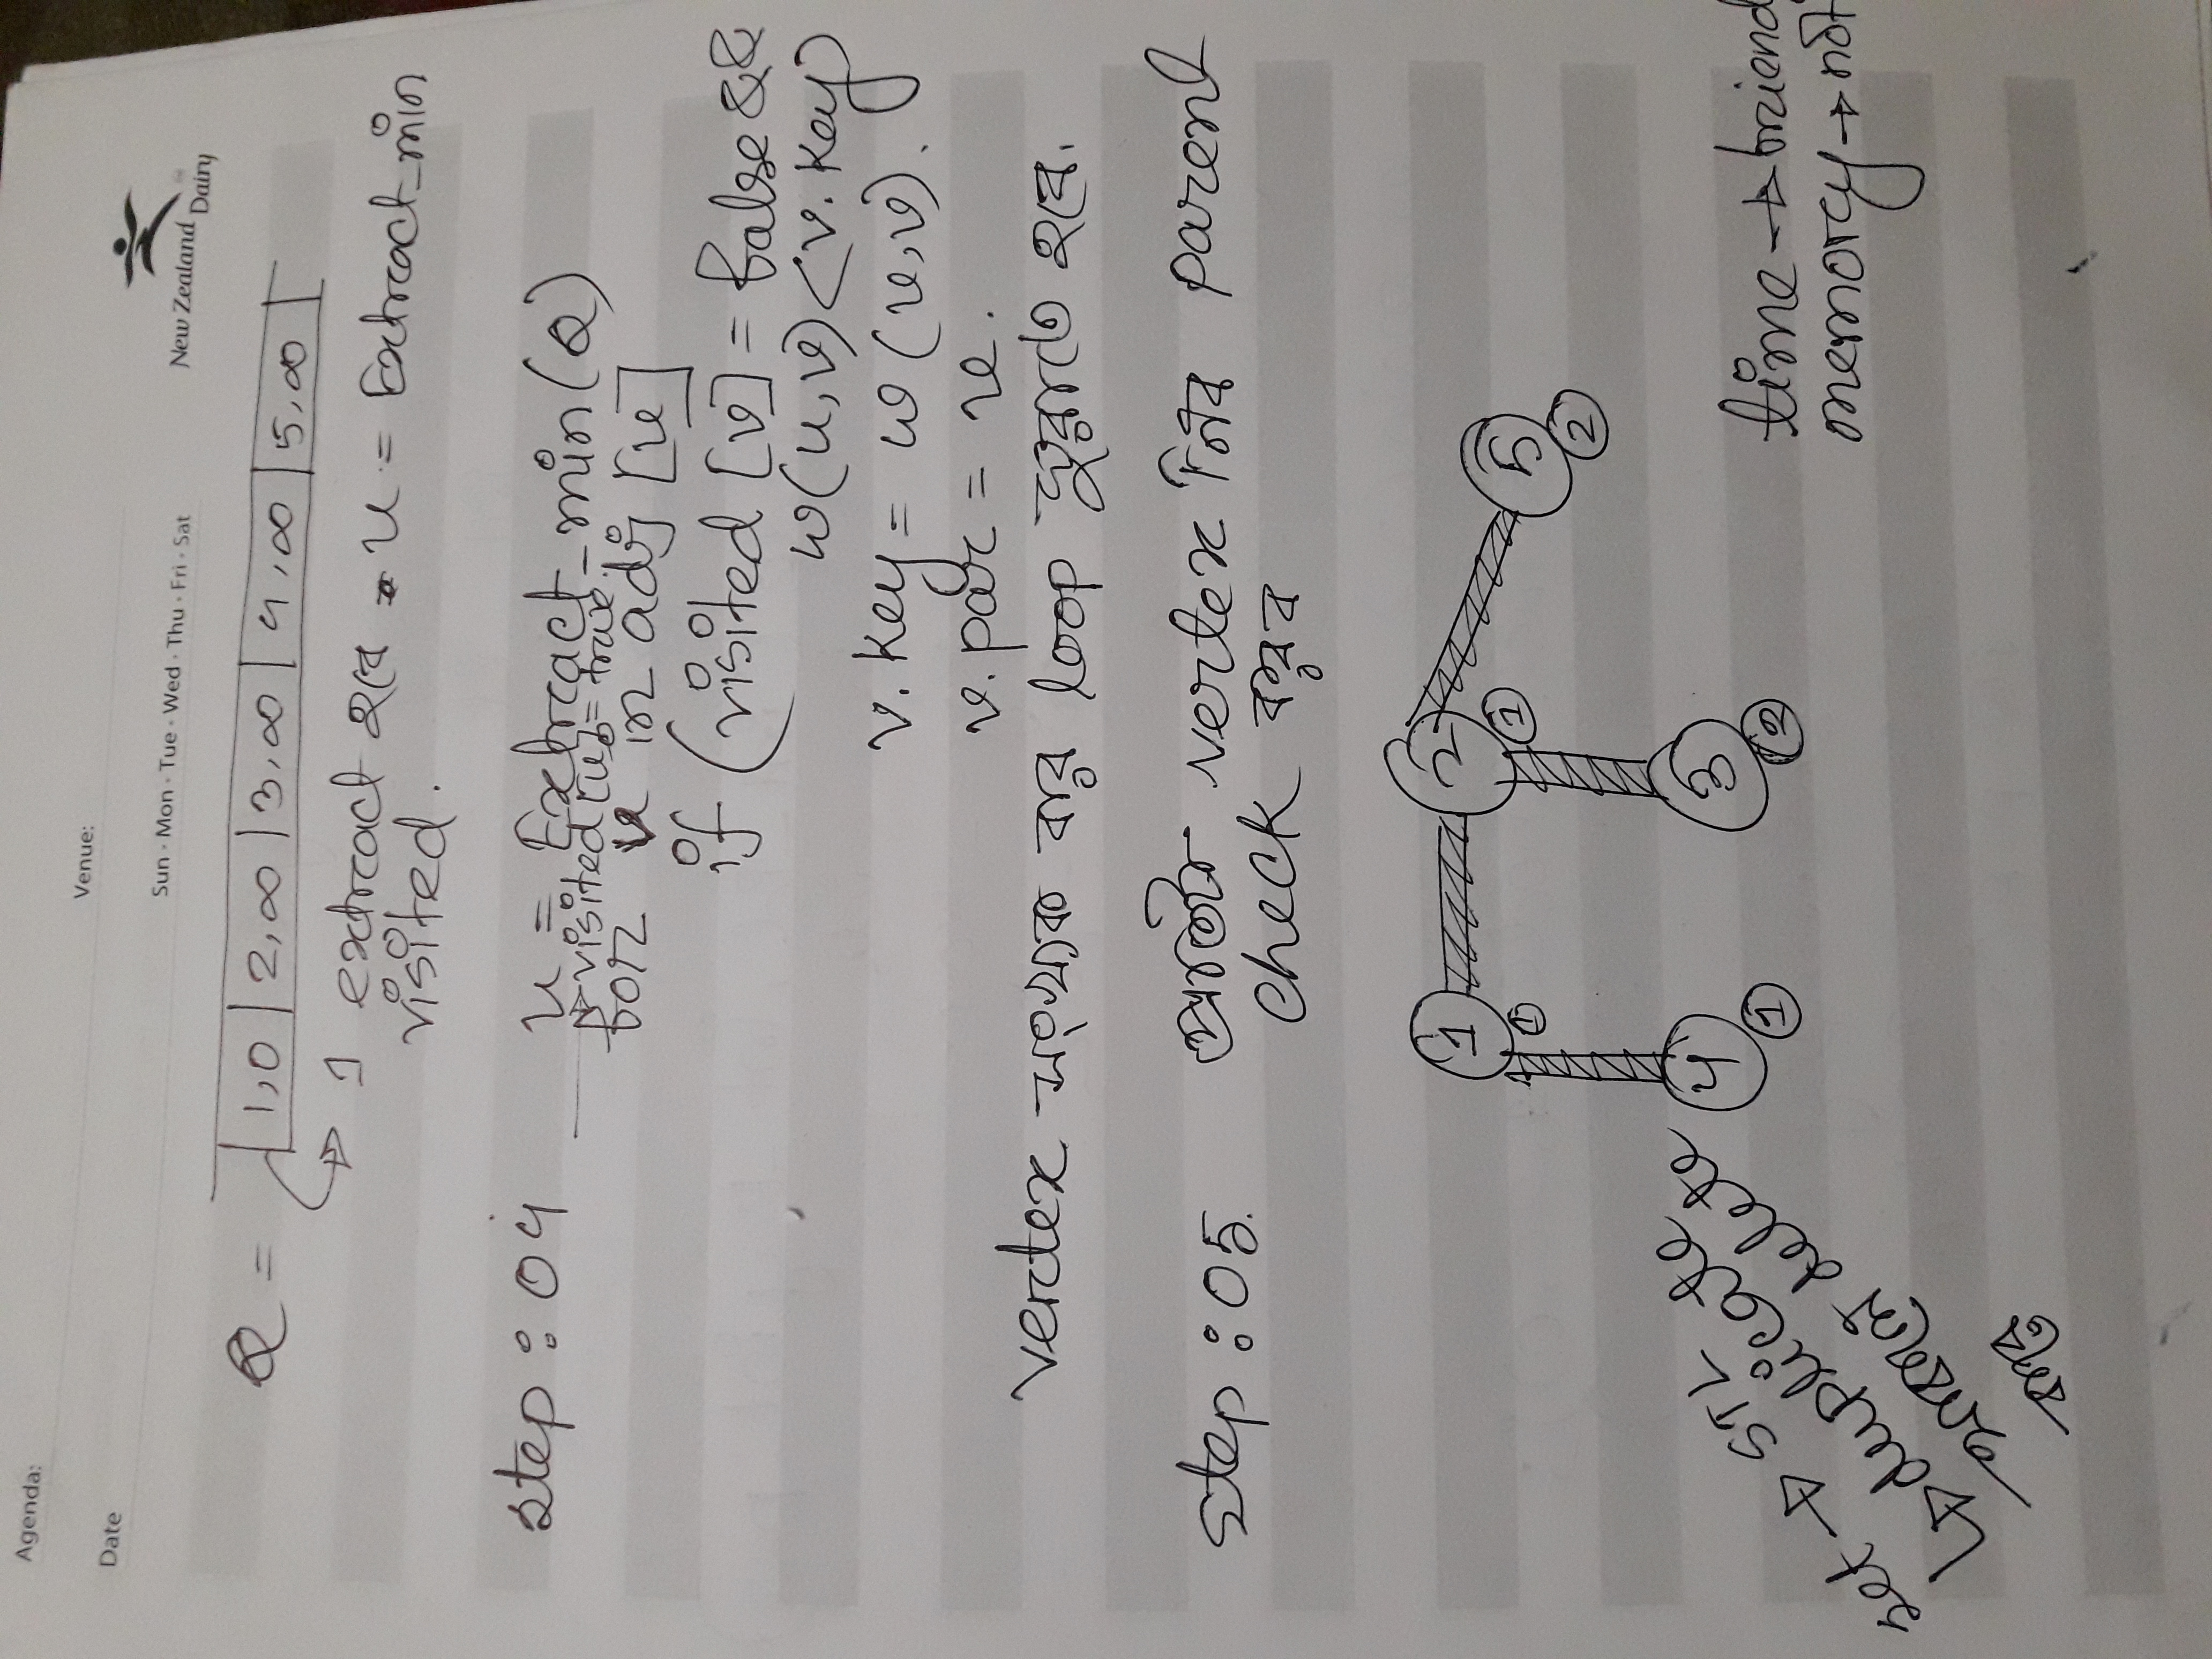 Agenda:
Venue:
Date
Sun · Mon · Tue · Wed · Thu · Fri · Sat
New Zealand Dairy
Q = 1,0 | 2,∞ | 3,∞ | 4,∞ | 5,∞
1 extract হবে u = Extract_min
visited.
step : 04 u = Extract_min(Q)
visited[u] = true.
for v in adj [u]
if (visited [v] = false &&
w(u,v) < v.key)
v.key = w(u,v).
v.par = u.
vertex সংখ্যক বার loop ঘুরাতে হবে.
step : 05. প্রতিটা vertex নিব parent
check করব
1 2 5
1 1 2
4 3
1 2
set → STL
duplicate
থাকলে delete
করে
time → friend
memory → not